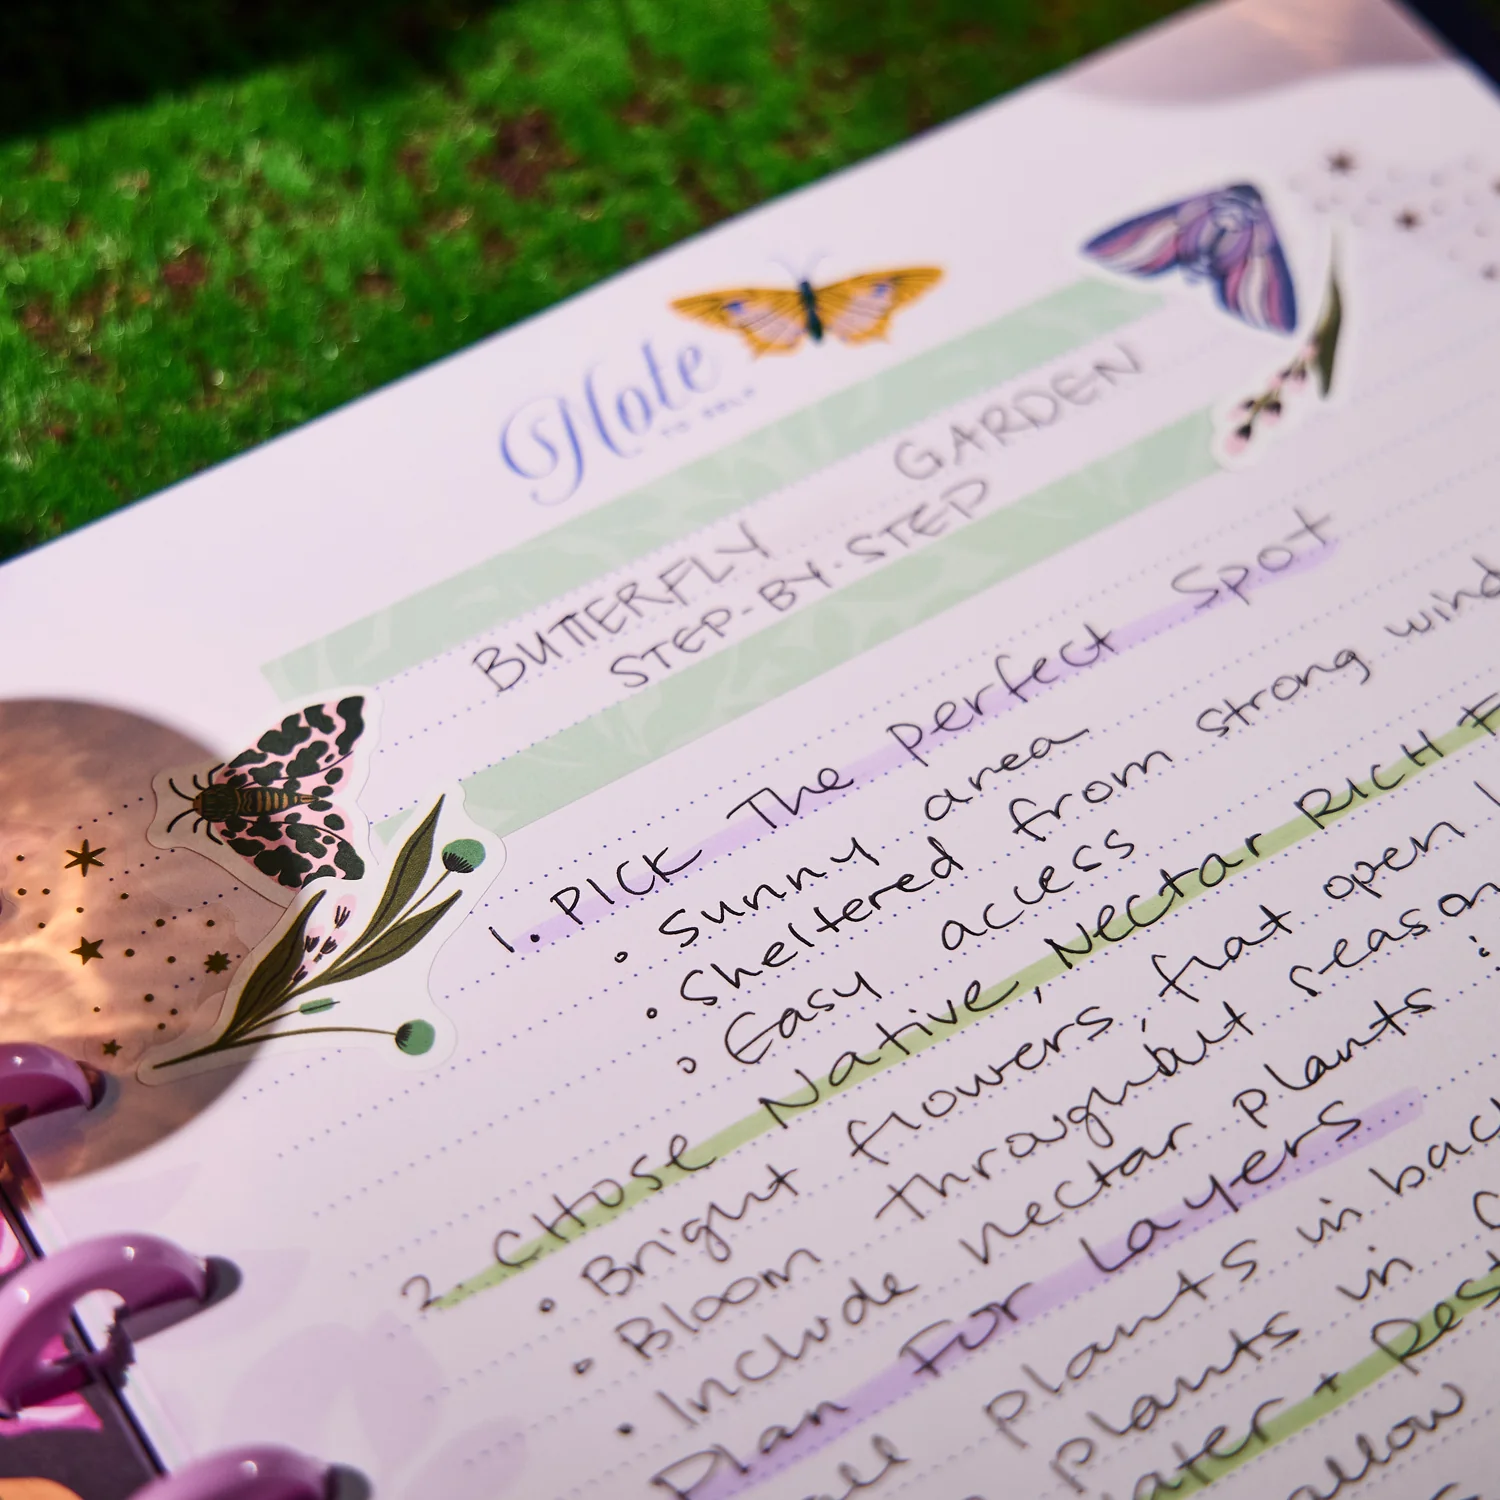 Note
TO SELF
BUTTERFLY GARDEN
STEP-BY-STEP
1. PICK The perfect Spot
• Sunny area
• Sheltered from strong wind
• Easy access
2. CHOSE Native, Nectar RICH
• Bright flowers, that open
• Bloom throughout season
• Include nectar plants
Plan For Layers
plants in
plants in
+ Rest